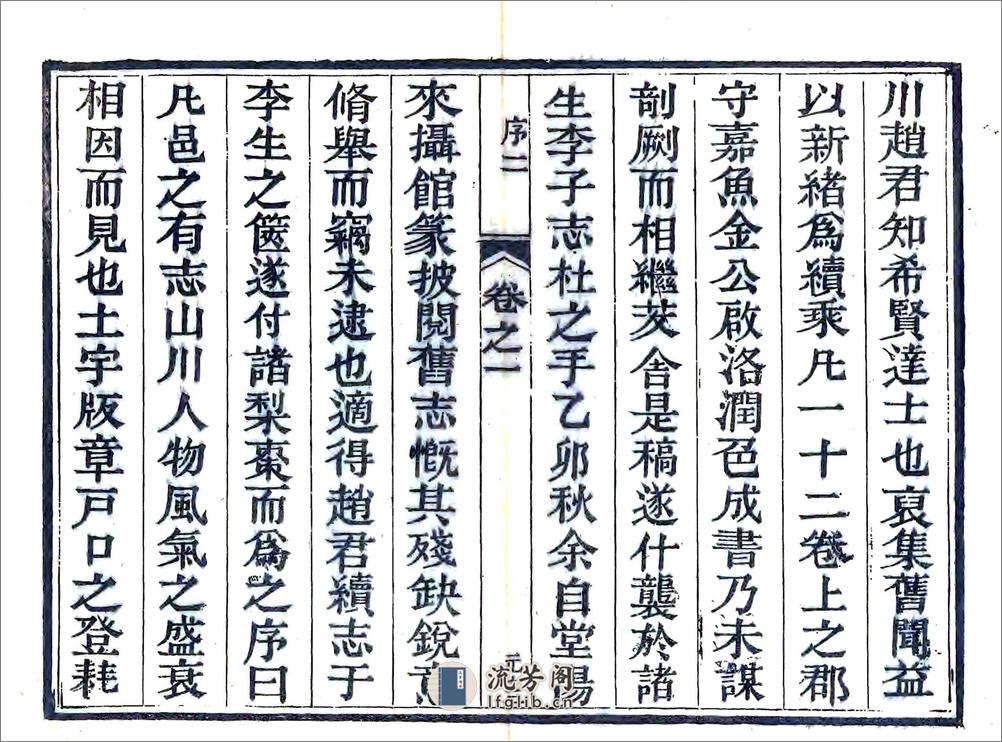 川趙君知希賢達士也裒集舊聞益
以新緒爲續乘凡一十二卷上之郡
守嘉魚金公啟洛潤色成書乃未謀
剞劂而相繼茇舍是稿遂什襲於諸
生李子志杜之手乙卯秋余自堂陽
序二
卷之一
元
來攝館篆披閱舊志慨其殘缺銳意
脩舉而竊未逮也適得趙君續志于
李生之篋遂付諸梨棗而爲之序曰
凡邑之有志山川人物風氣之盛衰
相因而見也土宇版章戸口之登耗
流芳阁
lfglib.cn